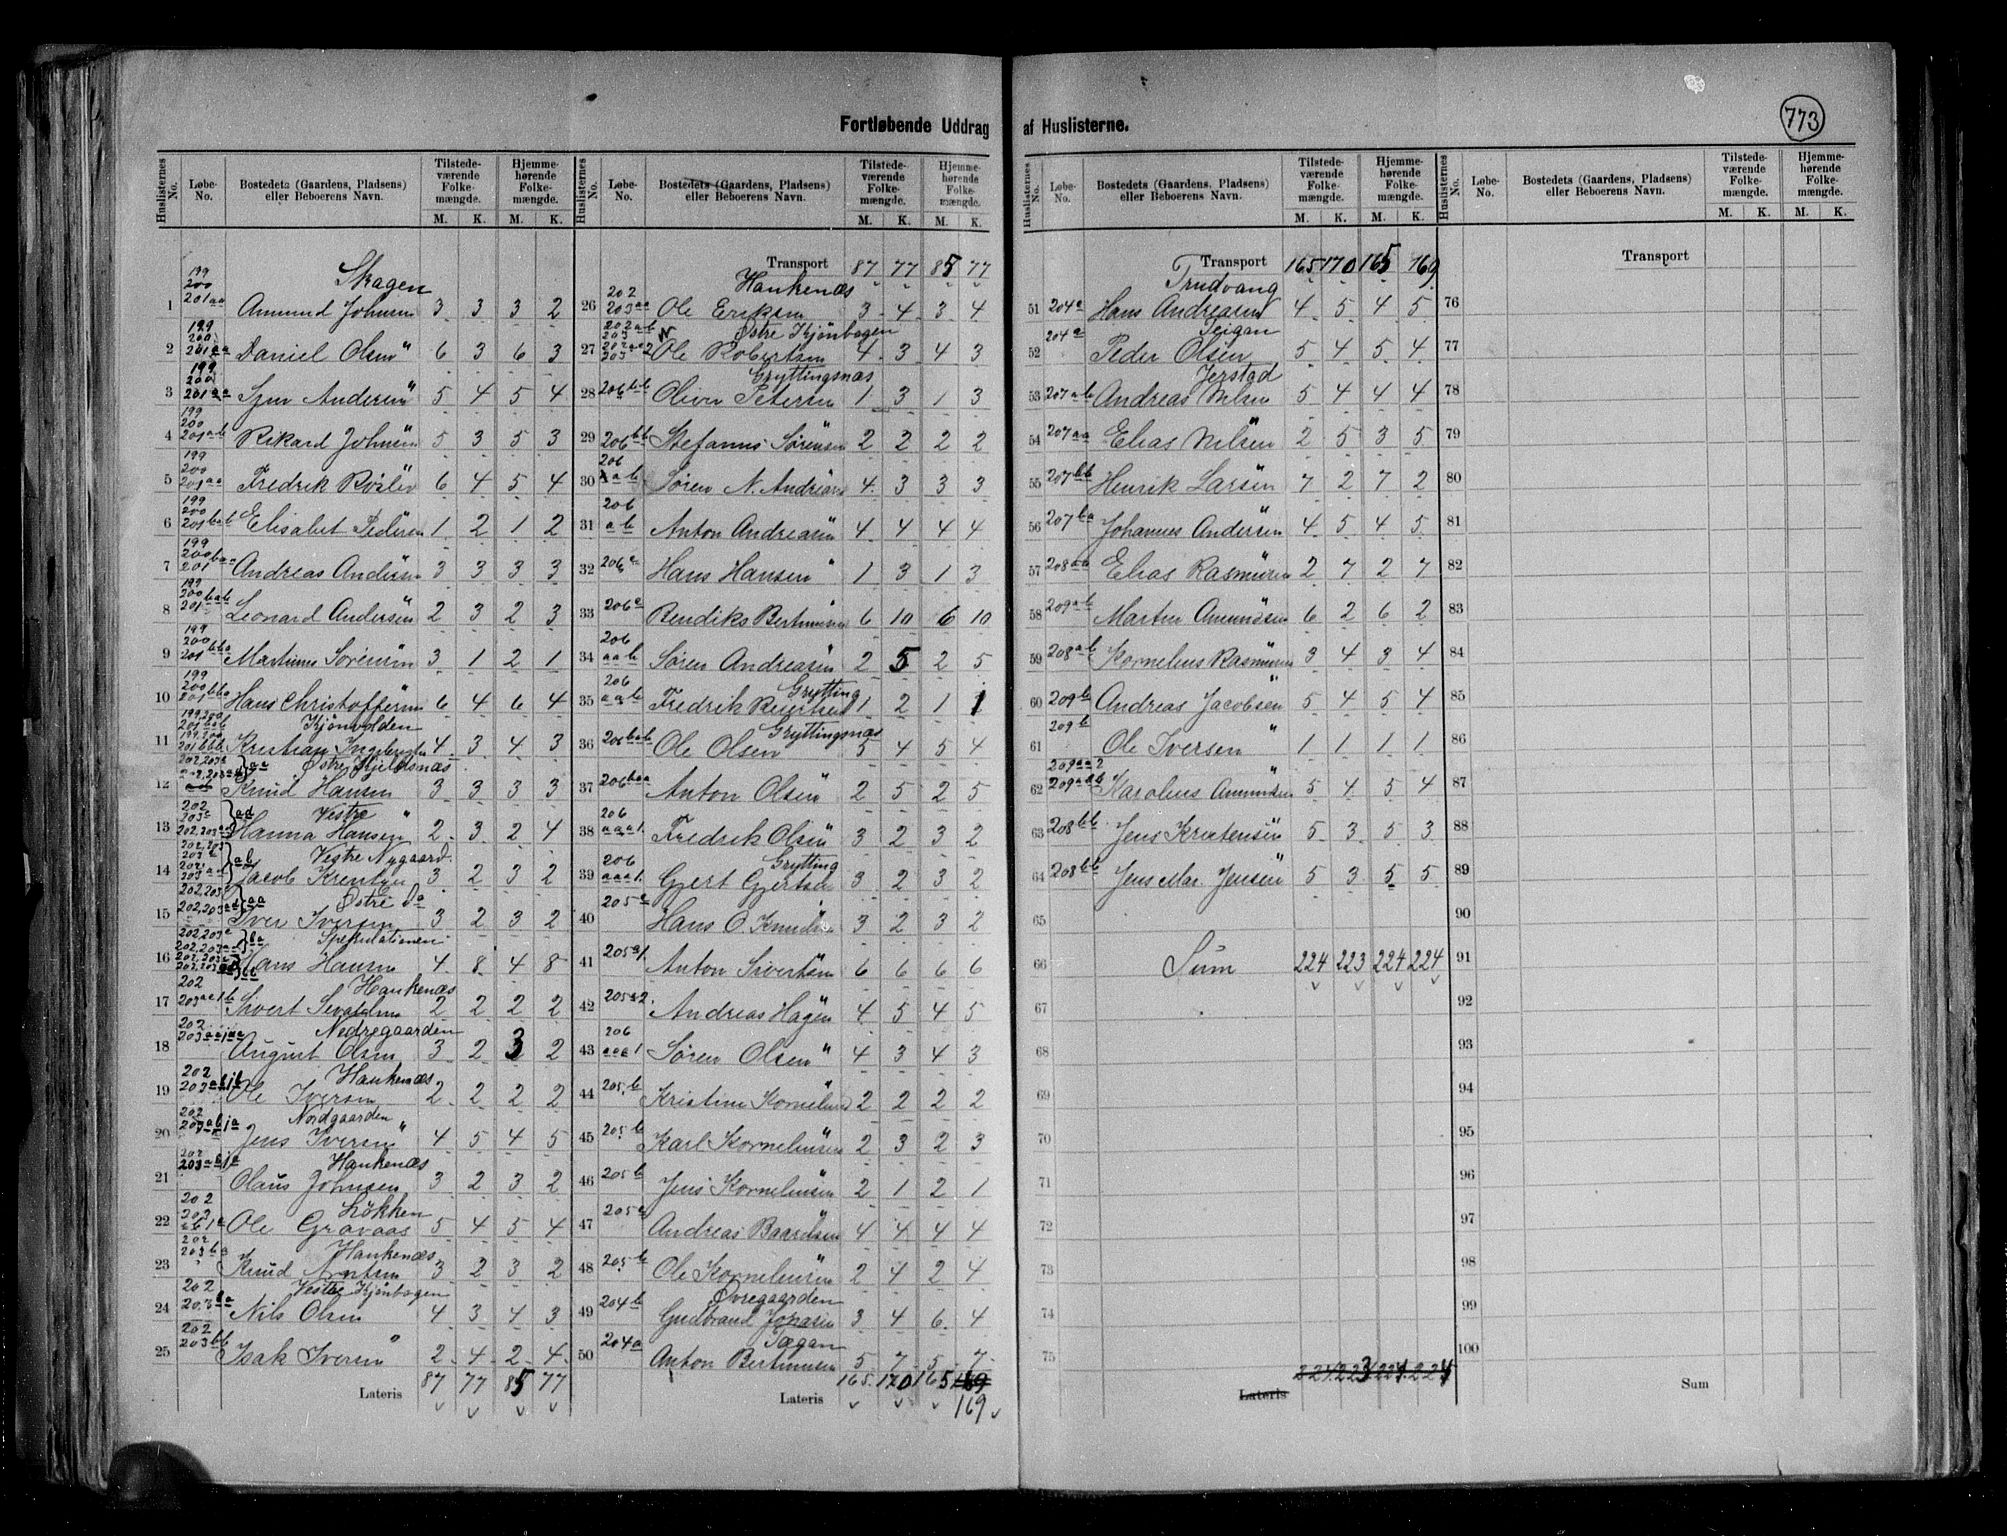 Fortløbende Uddrag af Huslisterne.
773
Huslisternes No. Løbe-No. Bostedets (Gaardens, Pladsens) eller Beboerens Navn. Tilstedeværende Folkemængde. M. K. Hjemmehørende Folkemængde. M. K.
199
200 Skagen
1 201aa Amund Johnsen 3 3 3 2
199
200
2 201aa Daniel Olsen " 6 3 6 3
199
200
3 201aa Andersen " 5 4 5 4
199
200
4 201ab Rikard Johnsen 5 3 5 3
199
200
5 201aa Fredrik 6 4 5 4
199
200
6 201bab Elisabet Pedersen 1 2 1 2
199
200
7 201baa Andreas Andersen 3 3 3 3
199
200
8 201bab Leonard Andersen 2 3 2 3
199
200
9 201bba Martinus Sörensen 3 1 2 1
199
200
10 201bba Hans Christoffersen 6 4 6 4
199,200
201bab Kjönvolden
199,200
11 201bbb Kristian 4 3 4 3
202,203a Østre Kjeldsnæs
12 Knud Hansen 3 3 3 3
202
203a ad Vestre "
13 202,203 Hanna Hansen 2 3 2 4
202,203 Vestre Nygaard
14 ab Jacob 3 2 3 2
202,203 Østre Do
15 Iver Iversen 3 2 3 2
202,203a ba Spekulationen
16 202,203 Hans Hansen 4 8 4 8
202 Hankenæs
17 203aa1b Sivert 2 2 2 2
202 Nedregaarden
18 August Olsen 3 2 3 2
202 Hankenæs
19 Ole Iversen 2 2 2 2
202 Nordgaarden
20 Jens Iversen " 4 5 4 5
202 Hankenæs
21 Olaus Johnsen 3 2 3 2
202
203 Løkken
22 ab1a Ole Gravaas 5 4 5 4
202
203ba Hankenæs
23 Knud Arntsen 3 2 3 2
202 Vestre Kjönbogen
24 203ba Nils Olsen 4 3 4 3
202
25 203bb Isak Iversen " 2 4 2 4
Lateris 87 77 85 77
Huslisternes No. Løbe-No. Bostedets (Gaardens, Pladsens) eller Beboerens Navn. Tilstedeværende Folkemængde. M. K. Hjemmehørende Folkemængde. M. K.
Transport 87 77 85 77
202 Hankenæs
26 203aa Ole Eriksen 3 4 3 4
202ab
203 Østre Kjönbogen
27 203 Ole Robertsen 4 3 4 3
Gryttingsnæs
28 206bb Oliver Petersen 1 3 1 3
29 206bb Stefanus Sörensen 2 2 2 2
206
30 aab Sören N. 4 3 3 3
206
31 ab Anton Andreasen 4 4 4 4
32 206a Hans Hansen " 1 3 1 3
33 206a Bendiks 6 10 6 10
206
34 aab Sören Andreasen 2 5 2 5
206 Grytting
35 aab Fredrik 1 2 1 1
Gryttingsnæs
36 206bab Ole Olsen 5 4 5 4
37 206baa Anton Olsen " 2 5 2 5
206
38 aaa1 Fredrik Olsen 3 2 3 2
206 Grytting
39 aaa1 Gjert Gjertsen 3 2 3 2
205a
40 Hans O. Knudsen 3 2 3 2
41 205a1 Anton Sivertsen 6 6 6 6
42 205a2 Andreas Hagen 4 5 4 5
206
43 aaa1 Sören Olsen " 4 3 4 3
44 205b Kristine 2 2 2 2
45 205b Karl Korneliusen 2 3 2 3
46 205b Jens Kornelinsen 2 1 2 1
47 205a Andreas Baardsen 4 4 4 4
48 205b Ole Kornelinsen 2 4 2 4
Øvregaarden
49 204b Gudbrand 3 4 6 4
50 204a Anton Bertinusen 5 7 5 7
Lateris 165 170 165 169
169
Huslisternes No. Løbe-No. Bostedets (Gaardens, Pladsens) eller Beboerens Navn. Tilstedeværende Folkemængde. M. K. Hjemmehørende Folkemængde. M. K.
Transport 165 170 165 169
Trudvang
51 204a Hans Andreasen 4 5 4 5
Teigan
52 204a Peder Olsen 5 4 5 4
Jerstad
53 207ab Andreas Nilsen 5 4 4 4
54 207aa Elias Nilsen 2 5 3 5
55 207bb Henrik Larsen 7 2 7 2
56 207ba Johannes Andersen 4 5 4 5
57 208aa Elias Rasmusen 2 7 2 7
58 209ab Martin Amundsen 6 2 6 2
59 208ab Kornelius Rasmusen 3 4 3 4
60 209b Andreas Jacobsen 5 4 5 4
209b
61 Ole Iversen " 1 1 1 1
209aa2
62 209aab Karolius Amundsen 5 4 5 4
63 208bb Jens Kristensen 5 3 5 3
64 208bb Jens Mar. Jensen 5 3 5 5
65
66 Sum 224 223 224 224
67
68
69
70
71
72
73
74
75
Lateris 224 223 224 224
Huslisternes No. Løbe-No. Bostedets (Gaardens, Pladsens) eller Beboerens Navn. Tilstedeværende Folkemængde. M. K. Hjemmehørende Folkemængde. M. K.
Transport
76
77
78
79
80
81
82
83
84
85
86
87
88
89
90
91
92
93
94
95
96
97
98
99
100
Sum